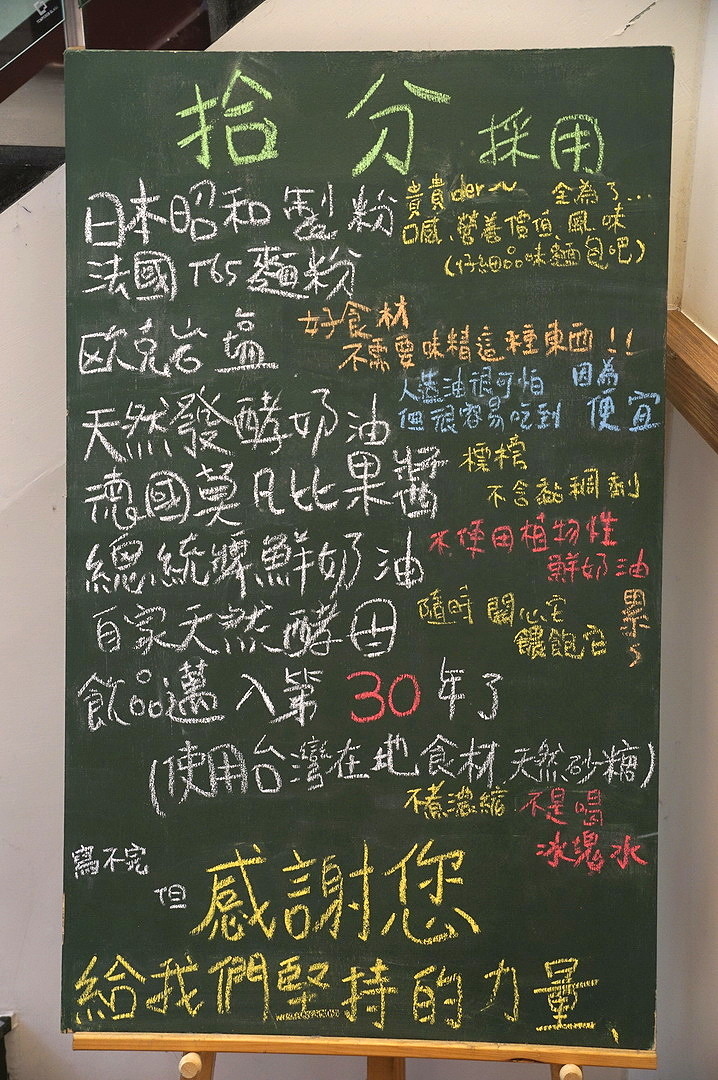 拾分 採用
日本昭和製粉 貴貴der~ 全為了...
口感、營養價值、風味
(仔細品味麵包吧)
法國T65麵粉
欧克岩塩 好食材
不需要味精這種東西!!
人造油很可怕 因為
但很容易吃到 便宜
天然發酵奶油
德國莫凡比果醬 標榜
不含黏稠劑
總統牌鮮奶油 不使用植物性
鮮奶油
自家天然酵母 隨時關心它
餵飽它 累
飲品邁入第30年了
(使用台灣在地食材,天然砂糖)
不煮濃縮 不是喝
冰塊水
寫不完
但 感謝您
給我們堅持的力量、